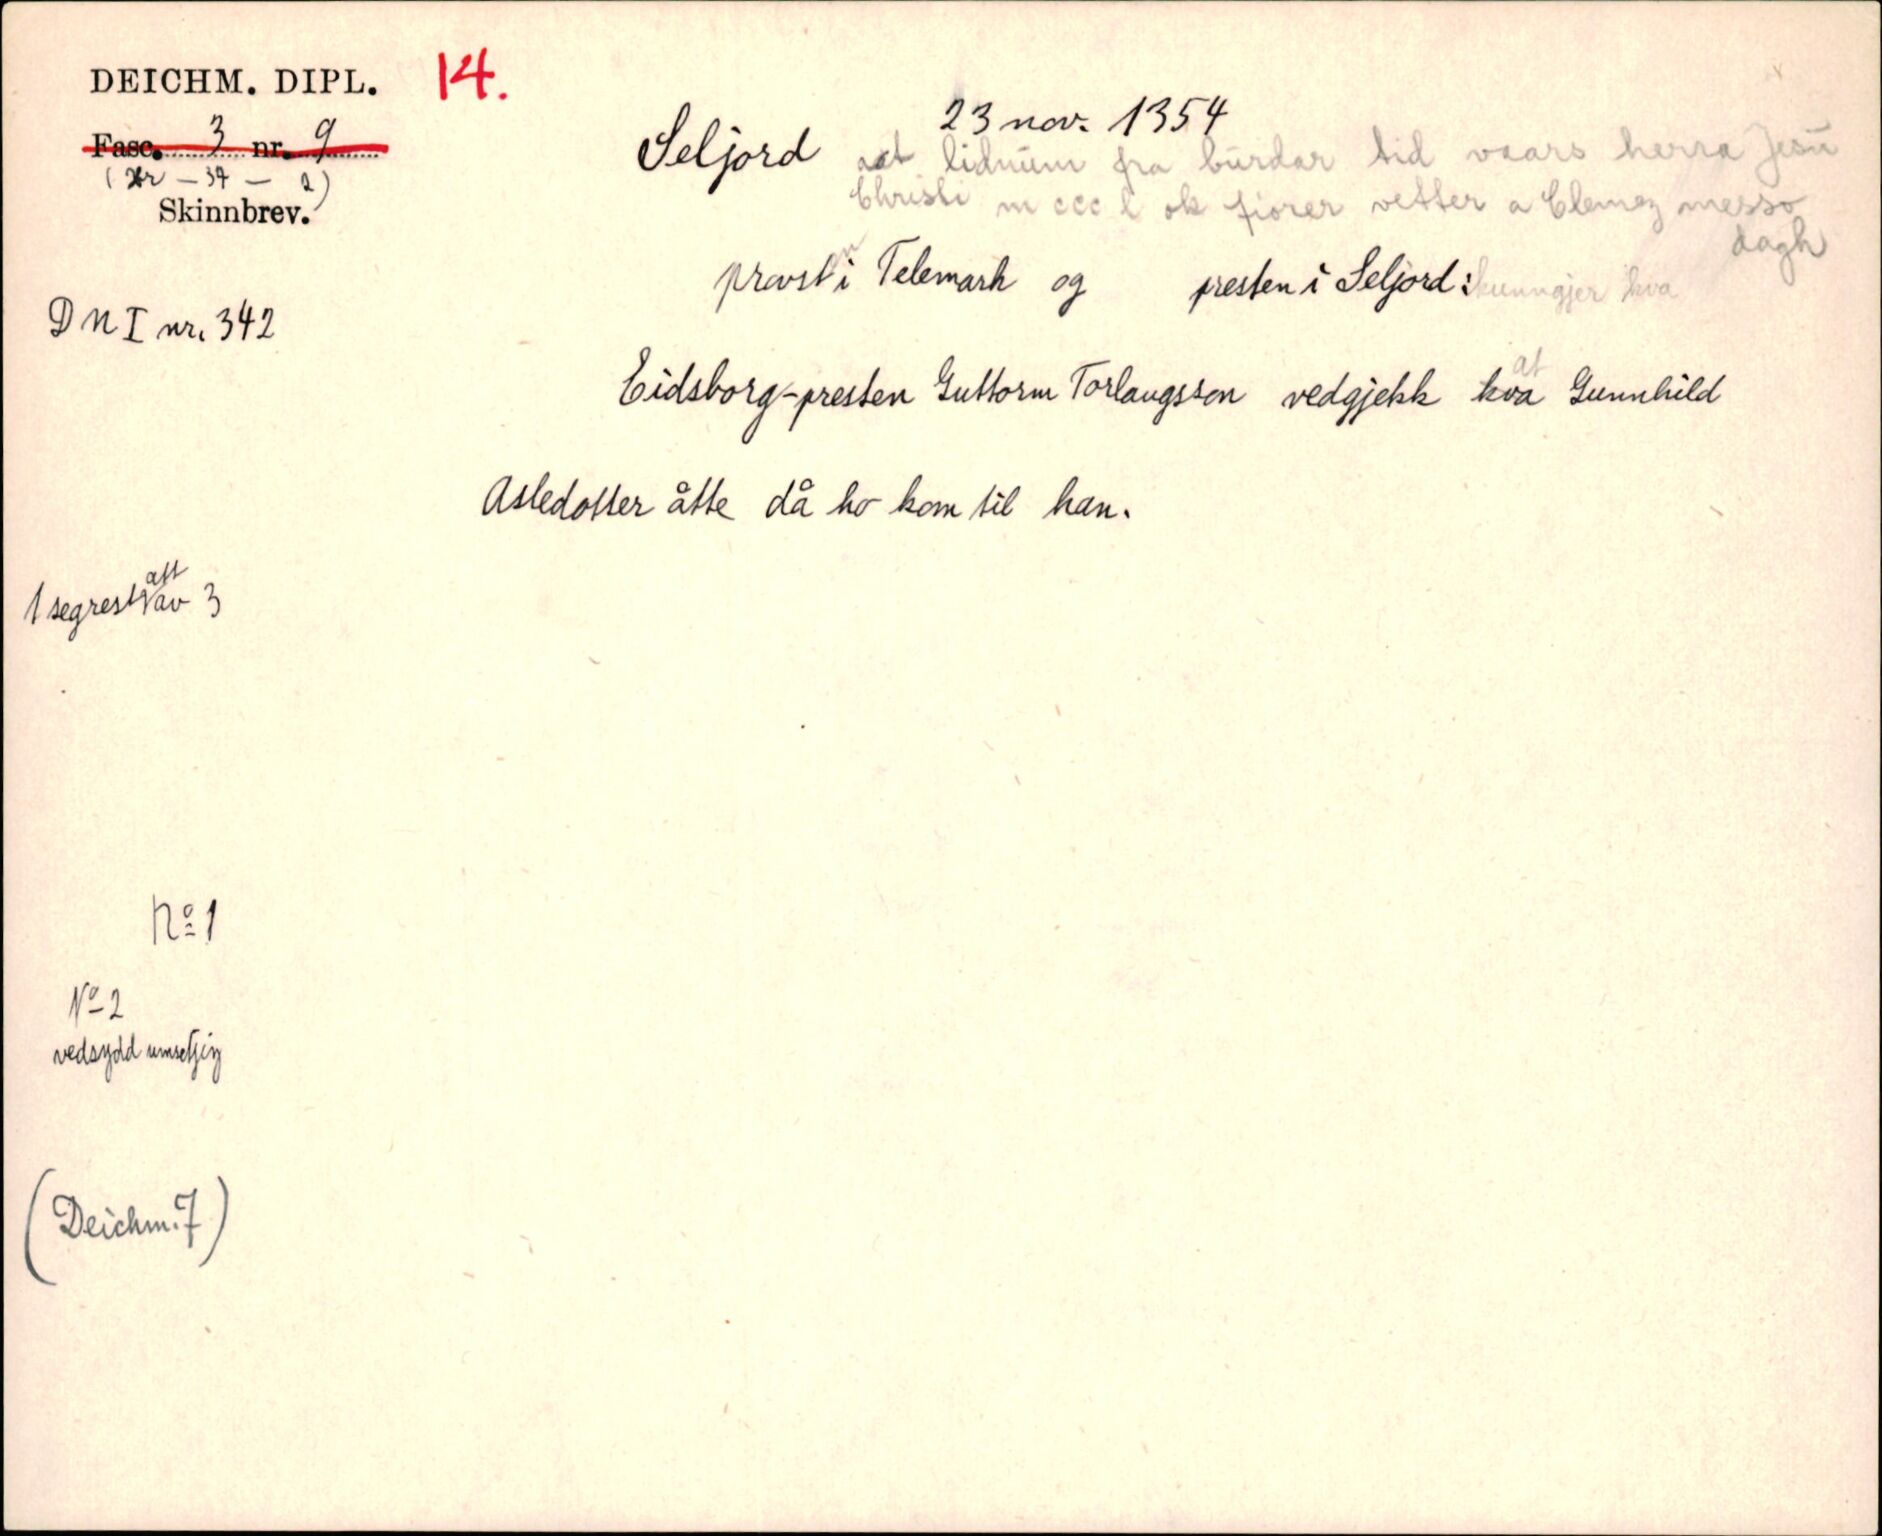 DEICHM. DIPL. 14.
Fasc. 3 nr. 9
( Nr - 34 - 2)
Skinnbrev.
23 nov. 1354
Seljord at lidnum fra burdar tid vaars herra Jesu
Christi m ccc l ok fiorer vetter a Clemez messo
dagh
provsten i Telemark og presten i Seljord: kunngjer kva
DN I nr. 342
at
Eidsborg-presten Guttorm Torlaugsson vedgjekk kva Gunnhild
Asledotter åtte då ho kom til han.
att
1 segrest av 3
No 1
No 2
vedsydd umsetjing
(Deichm. 7)